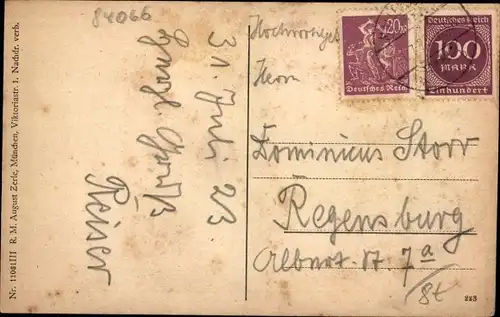 84066
31. Juli 23
Reiser
Nr. 11061III R. M. August Zerle, München, Viktoriastr. 1. Nachdr. verb.
20
Deutsches Reich
Deutsches Reich
100
MARK
Einhundert
Herrn
Dominicus Storr
Regensburg
Albert St. 7a
/8t
223